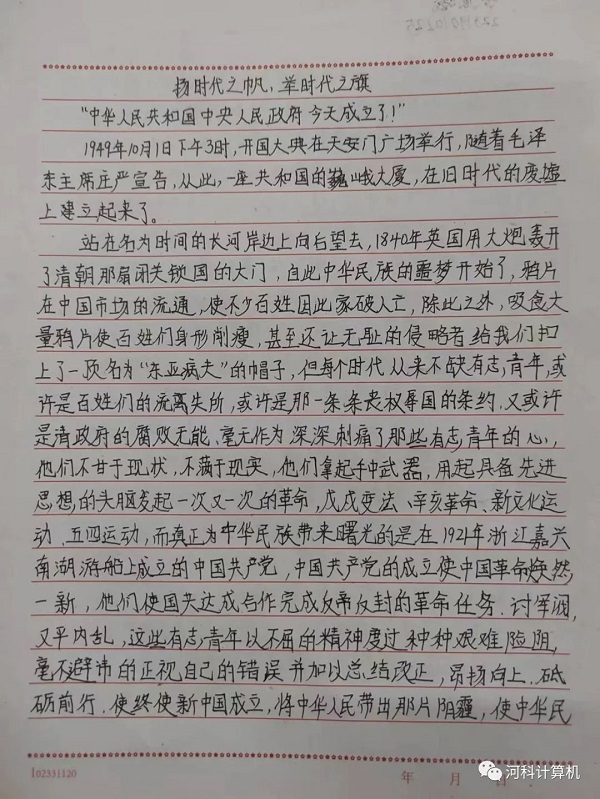 扬时代之帆，举时代之旗
"中华人民共和国中央人民政府今天成立了！"
1949年10月1日下午3时，开国大典在天安门广场举行，随着毛泽
东主席庄严宣告，从此，一座共和国的巍峨大厦，在旧时代的废墟
上建立起来了。
站在名为时间的长河岸边上向后望去，1840年英国用大炮轰开
了清朝那扇闭关锁国的大门，自此中华民族的噩梦开始了，鸦片
在中国市场的流通，使不少百姓因此家破人亡，除此之外，吸食大
量鸦片使百姓们身形削瘦，甚至还让无耻的侵略者给我们扣
上了一顶名为"东亚病夫"的帽子，但每个时代从来不缺有志青年，或
许是百姓们的流离失所，或许是那一条条丧权辱国的条约，又或许
是清政府的腐败无能、毫无作为深深刺痛了那些有志青年的心，
他们不甘于现状，不满于现实，他们拿起手中武器，用起具备先进
思想的头脑发起一次又一次的革命，戊戌变法、辛亥革命、新文化运
动、五四运动，而真正为中华民族带来曙光的是在1921年浙江嘉兴
南湖游船上成立的中国共产党，中国共产党的成立使中国革命焕然
一新，他们使国共达成合作完成反帝反封的革命任务．讨军阀，
又平内乱，这些有志青年以不屈的精神度过种种艰难险阻，
毫不避讳的正视自己的错误并加以总结改正，昂扬向上．砥
砺前行．使终使新中国成立，将中华人民带出那片阴霾，使中华民
102331120
年 月
河科计算机